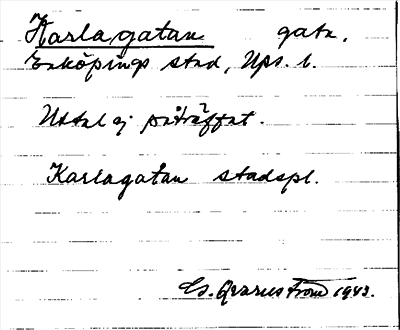 Karlagatan gata.
Enköpings stad, Ups. l.
Uttal ej påträffat.
Karlagatan stadspl.
G. Qvarnström 1943.